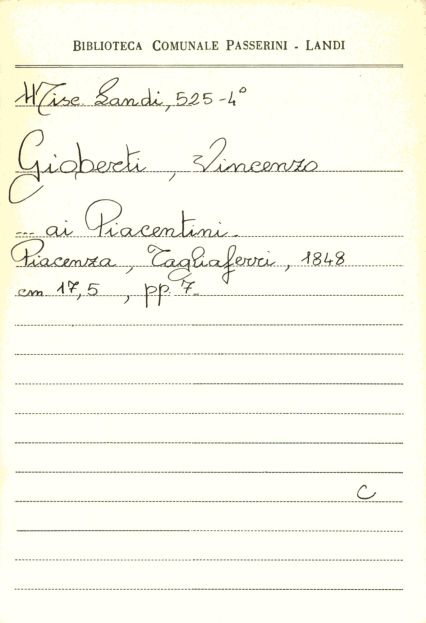 BIBLIOTECA COMUNALE PASSERINI - LANDI
Misc Landi, 525-4°
Gioberti, Vincenzo
... ai Piacentini.
Piacenza, Tagliaferri, 1848
cm 17,5 , pp. 7.
C